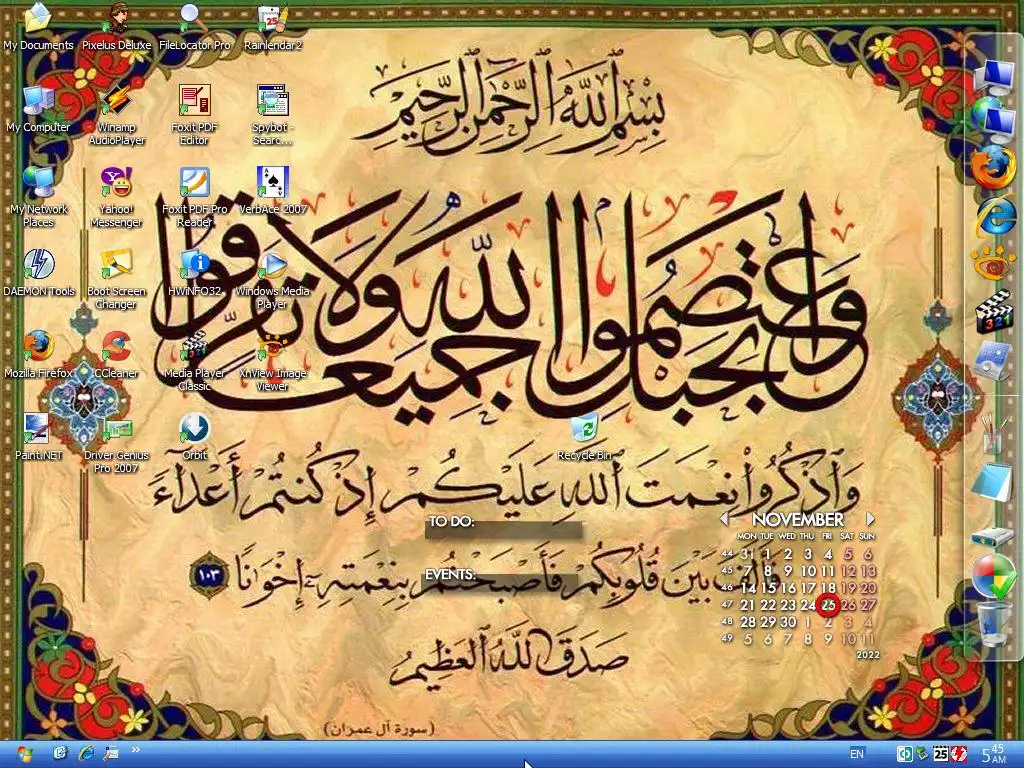 My Documents
Pixelus Deluxe
FileLocator Pro
Rainlendar2
My Computer
Winamp AudioPlayer
Foxit PDF Editor
Spybot - Searc...
My Network Places
Yahoo! Messenger
Foxit PDF Pro Reader
VerbAce 2007
DAEMON Tools
Boot Screen Changer
HWiNFO32
Windows Media Player
Mozilla Firefox
CCleaner
Media Player Classic
XnView Image Viewer
Paint.NET
Driver Genius Pro 2007
Orbit
Recycle Bin
بسم الله الرحمن الرحيم
واعتصموا بحبل الله جميعا ولا تفرقوا
وَاذْكُرُوا نِعْمَتَ اللهِ عَلَيْكُمْ إِذْ كُنتُمْ أَعْدَاءً
فَأَلَّفَ بَيْنَ قُلُوبِكُمْ فَأَصْبَحْتُم بِنِعْمَتِهِ إِخْوَانًا ١٠٣
صدق الله العظيم
(سورة آل عمران)
TO DO:
EVENTS:
NOVEMBER
MON TUE WED THU FRI SAT SUN
44 31 1 2 3 4 5 6
45 7 8 9 10 11 12 13
46 14 15 16 17 18 19 20
47 21 22 23 24 25 26 27
48 28 29 30 1 2 3 4
49 5 6 7 8 9 10 11
2022
321
EN
25
5 45 AM